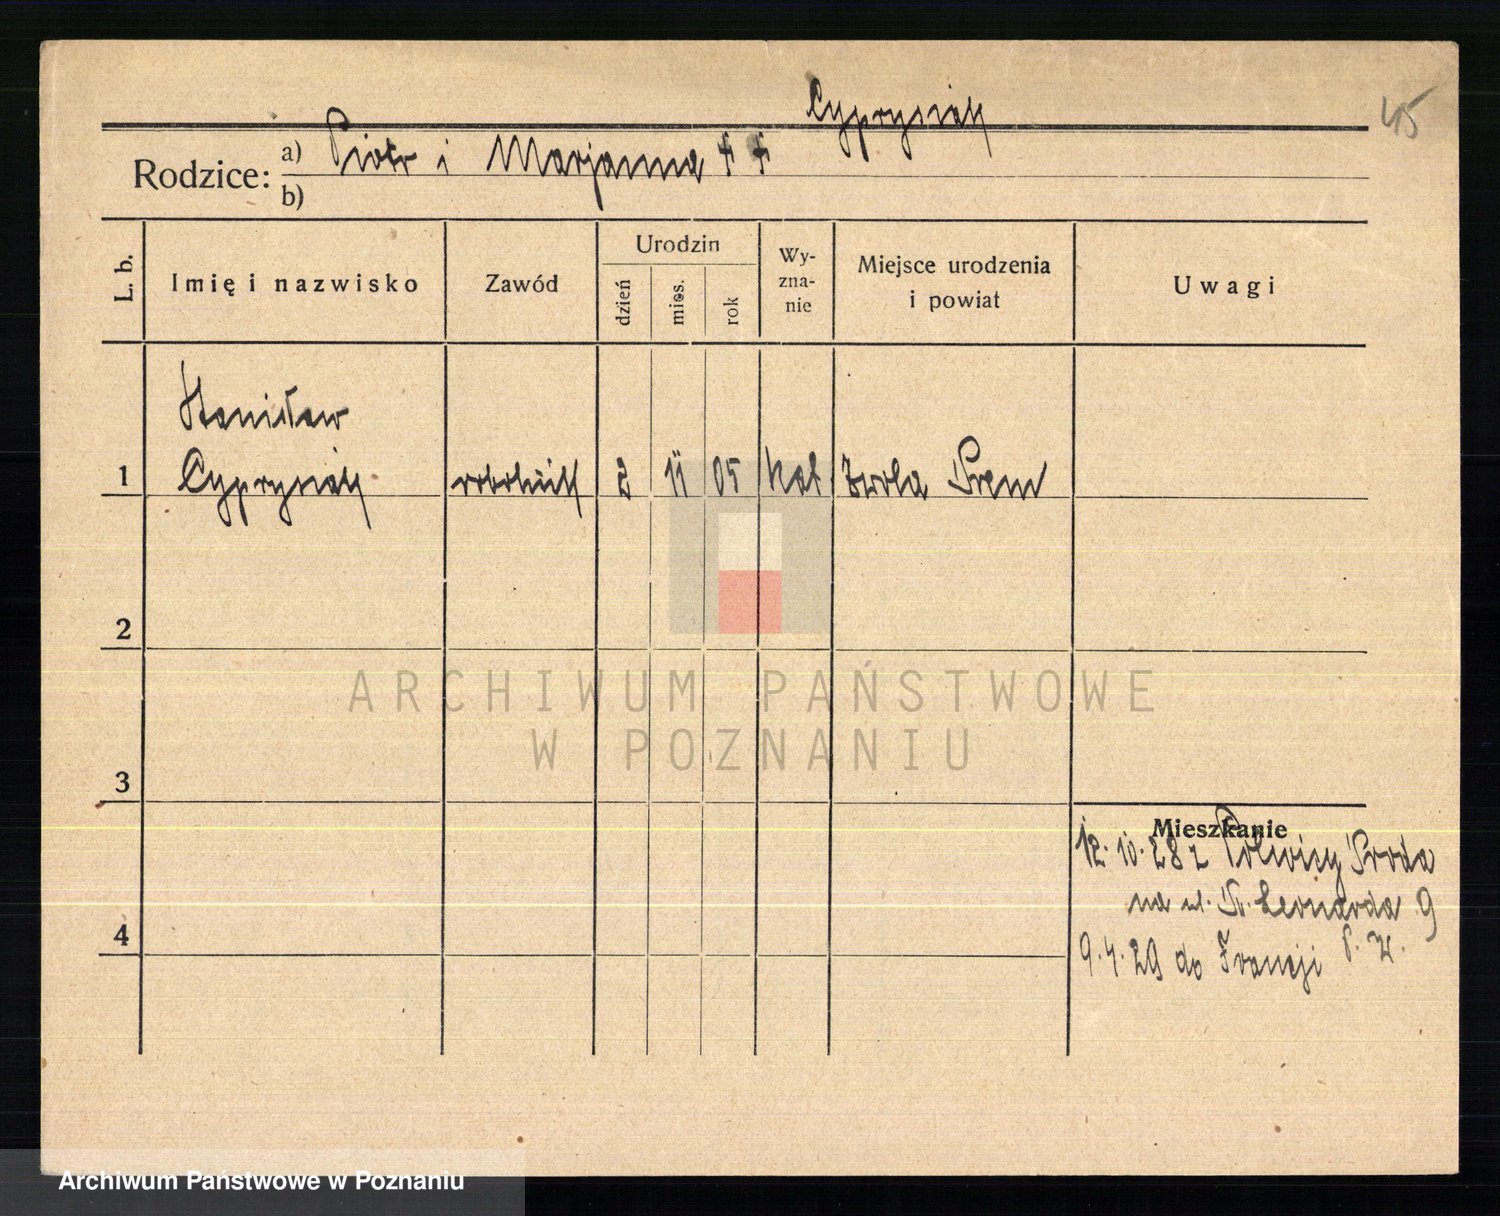 Cyprysiak
45
Rodzice: a) Piotr i Marjanna ++
b)
L. b. Imię i nazwisko Zawód Urodzin dzień mies. rok Wy-zna-nie Miejsce urodzenia i powiat Uwagi
Stanisław
1 Cyprysiak robotnik 2 11 05 kat Zwola Śrem
2
ARCHIWUM PAŃSTWOWE
W POZNANIU
3
Mieszkanie
12. 10. 28 z Połwicy Środa
na ul. Św. Leonarda 9
4
9. 4. 29 do Francji
Archiwum Państwowe w Poznaniu